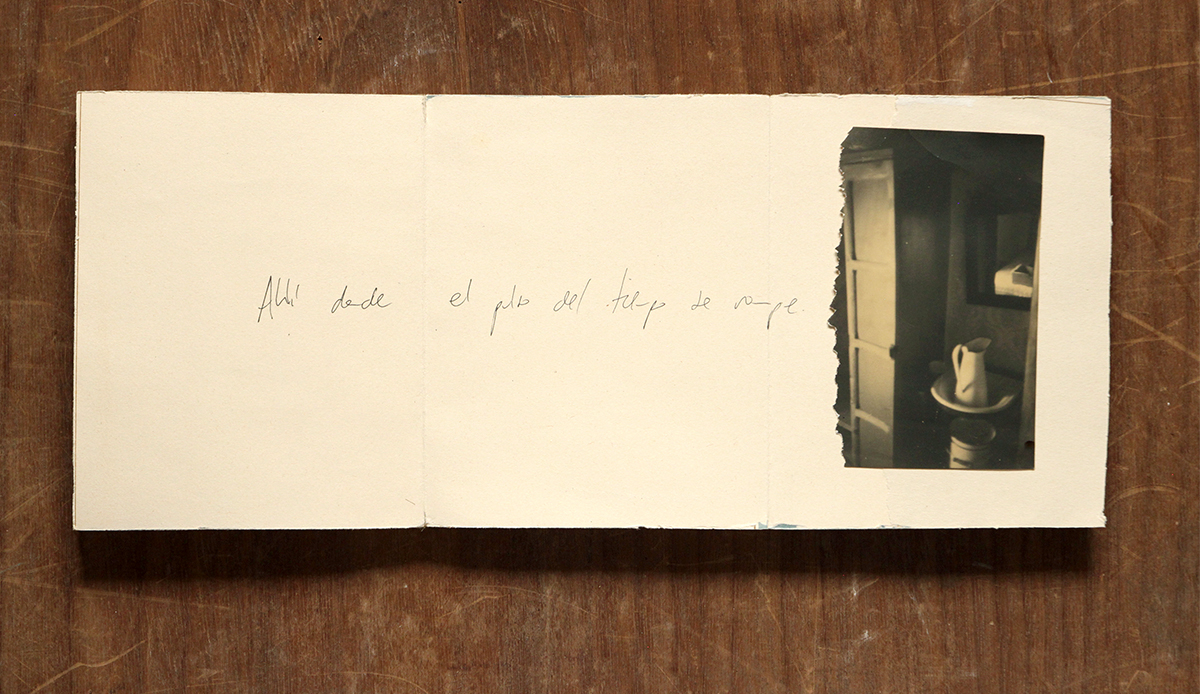 Allí donde el pulso del tiempo se rompe.